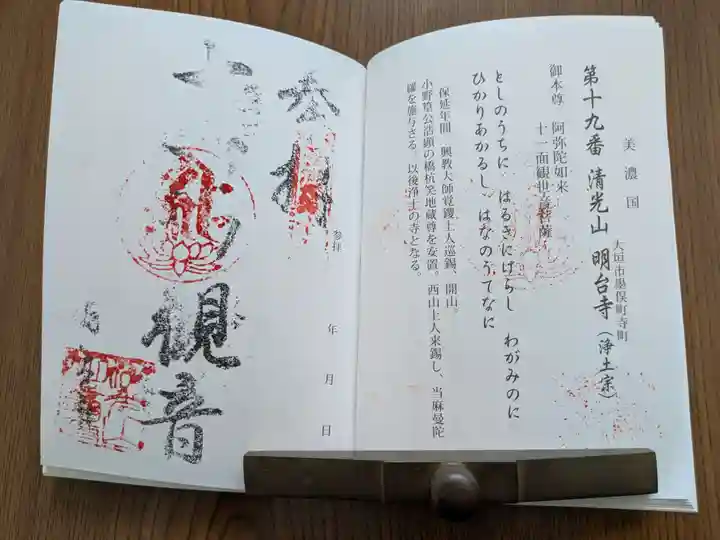 美濃国
大垣市墨俣町寺町
第十九番 清光山 明台寺（浄土宗）
御本尊 阿弥陀如来
十一面観世音菩薩
としのうちに はるきにけらし わがみのに
ひかりあかるし はなのうてなに
保延年間 興教大師覚鑁上人巡錫、開山。
小野篁公浩顕の橋杭笑地蔵尊を安置。西山上人来錫し、当麻曼陀
羅を塵与さる 以後浄土の寺となる。
参拝 年 月 日
奉拝
観音